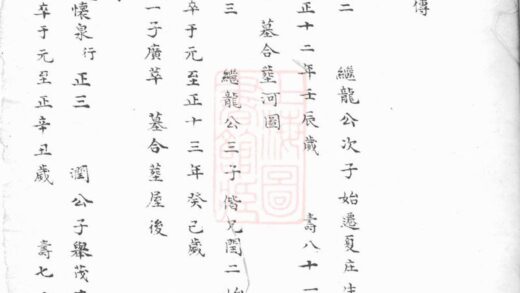 傳
二 繼龍公次子始遷夏庄
正十二年壬辰歲 壽八十一
墓合塟河圖
三 繼龍公三子偕兄閏二始
卒于元至正十三年癸巳歲
一子廣萃 墓合塟屋後
懷泉行正三 潤公子舉茂
卒于元至正辛丑歲 壽七
上海圖書館藏